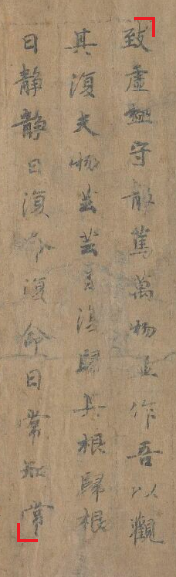 致虛極守靜篤萬物並作吾以觀
其復夫物芸芸各復歸其根歸根
曰靜靜曰復命復命曰常知常